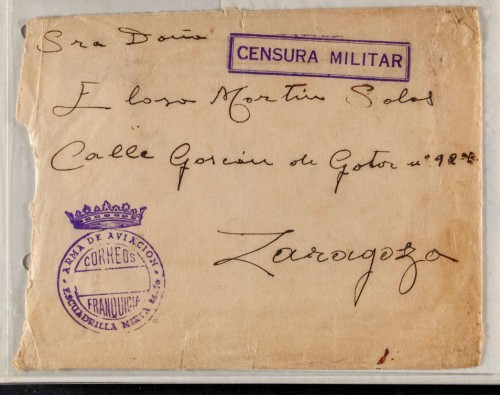 Sra Doña
CENSURA MILITAR
Elosa Martin Salas
Calle Garcian de Gotor nº
Zaragoza
ARMA DE AVIACION
CORREOS
FRANQUICIA
ESCUADRILLA MIXTA